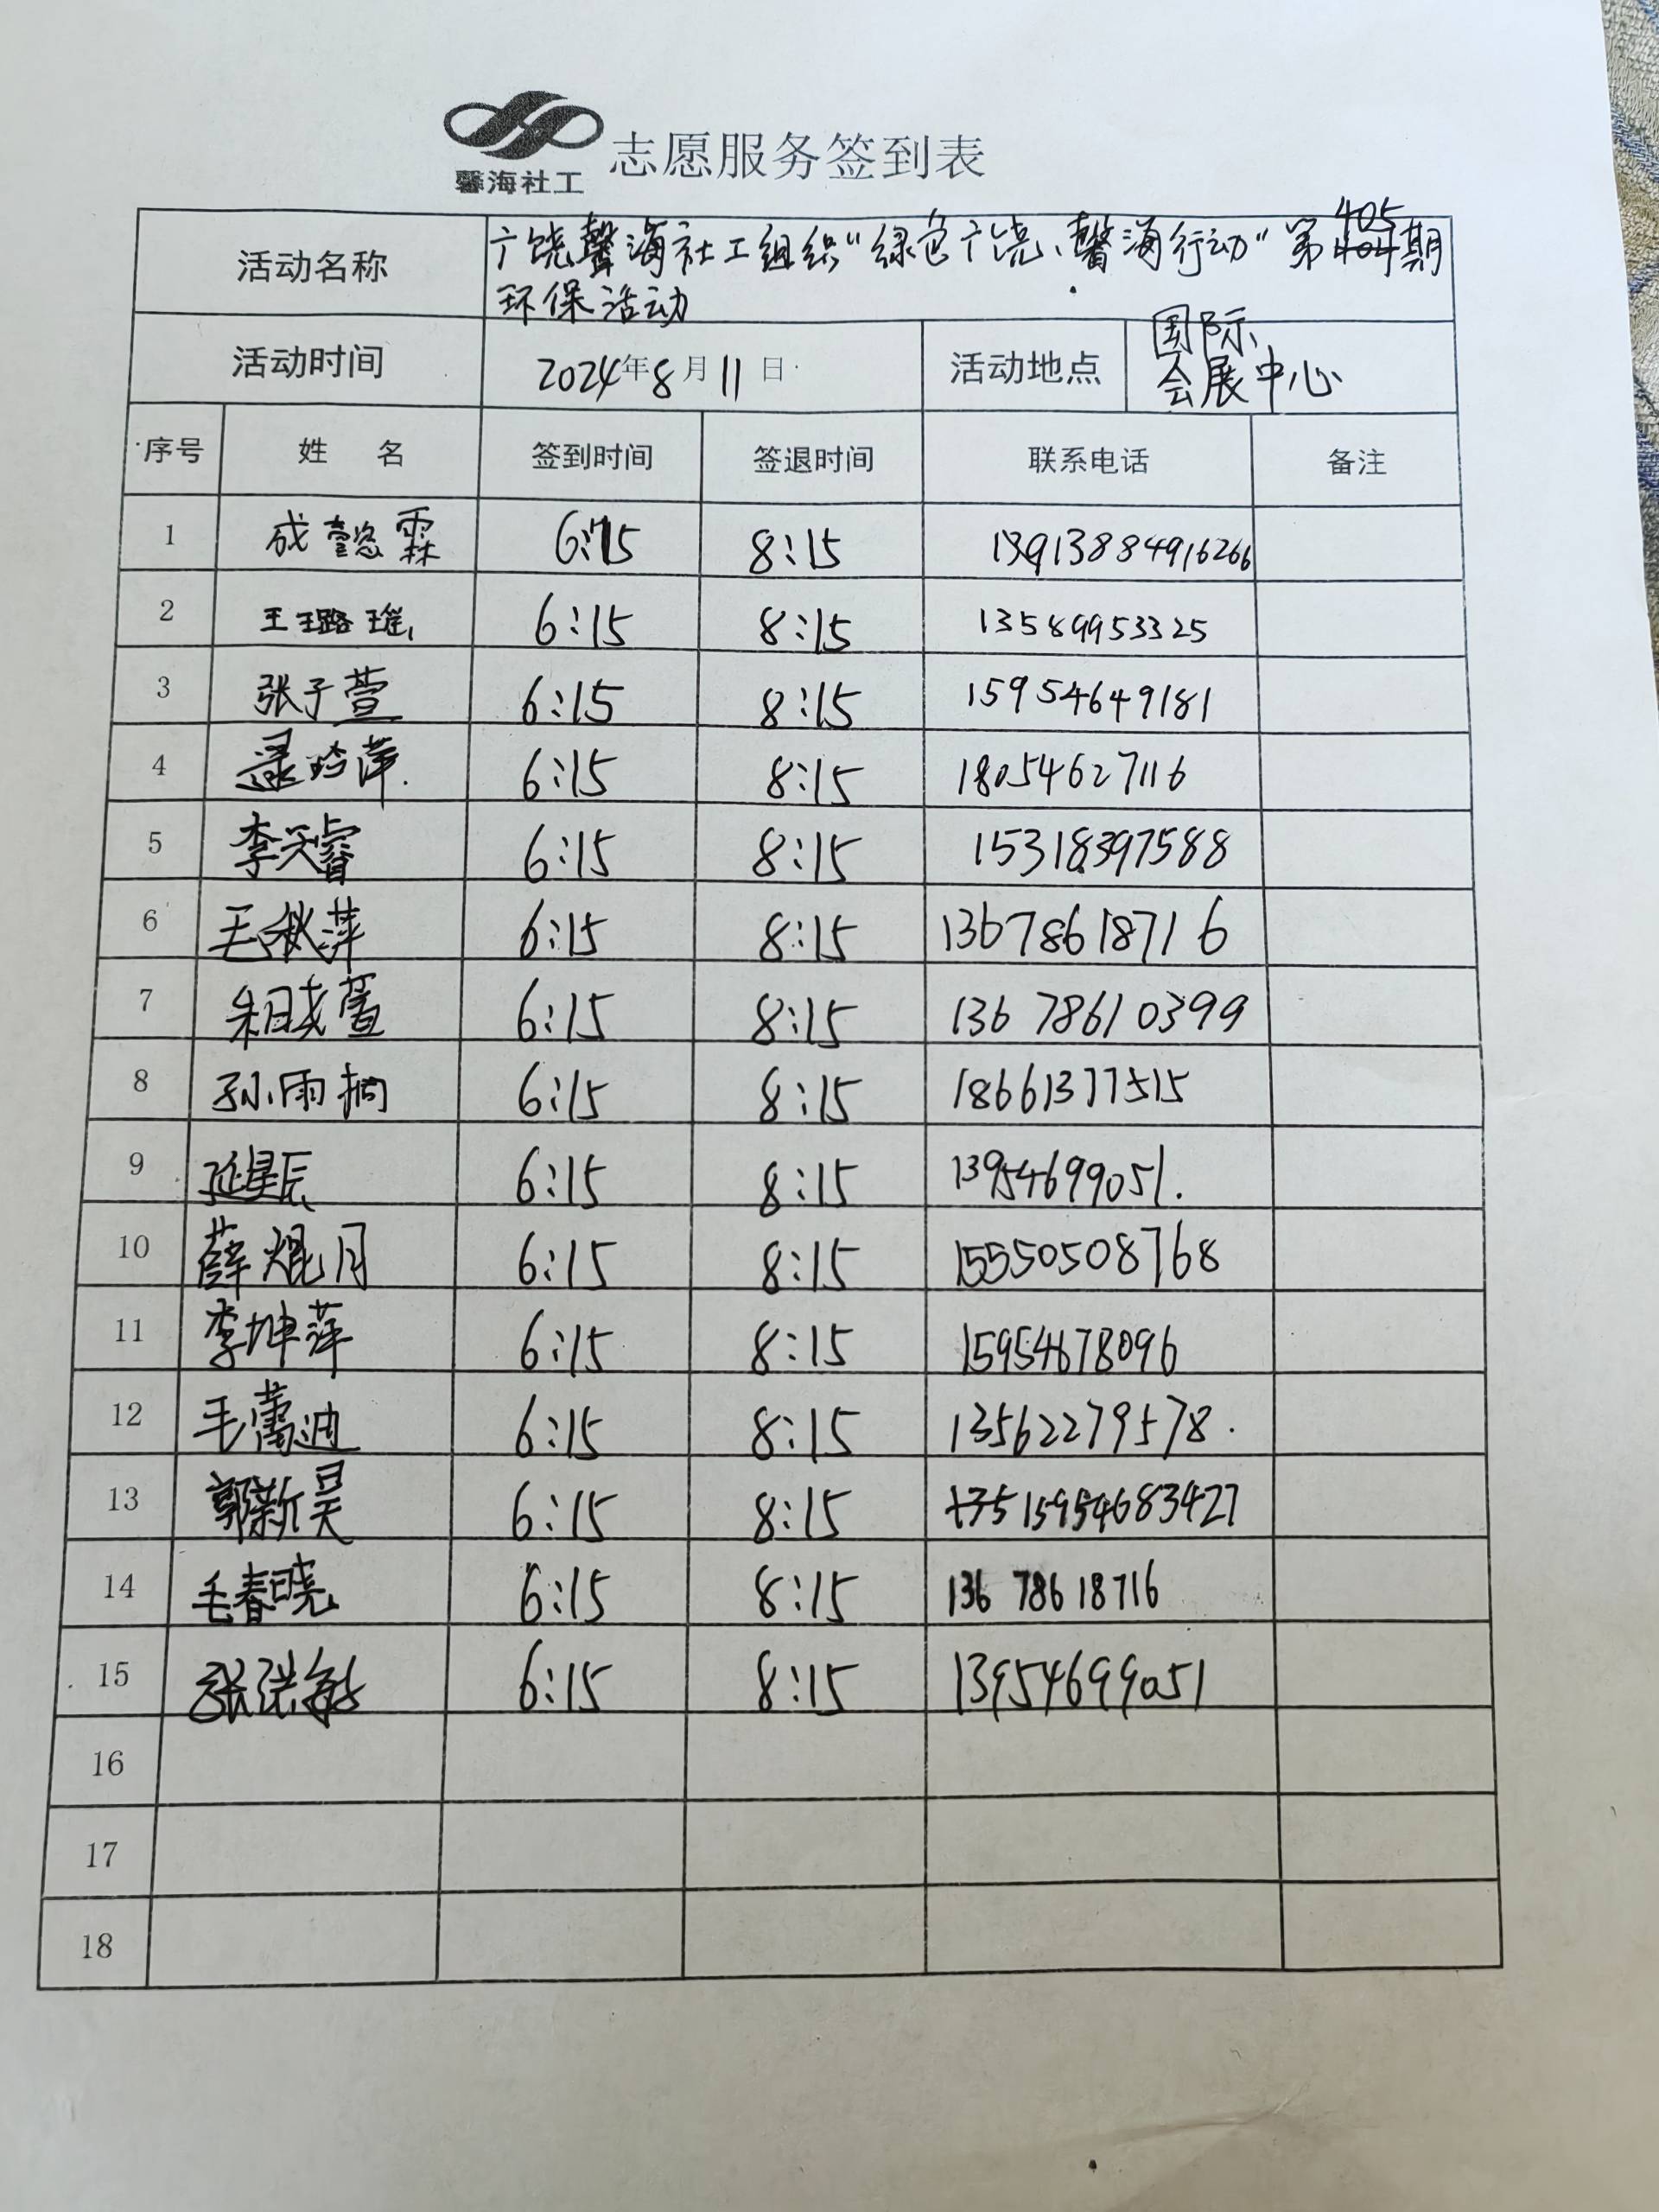 馨海社工
志愿服务签到表
活动名称 广饶馨海社工组织“绿色广饶、馨海行动”第405期
环保活动
活动时间 2024年8月11日 活动地点 国际
会展中心
序号 姓 名 签到时间 签退时间 联系电话 备注
1 成懿霖 6:15 8:15
2 王璐瑶 6:15 8:15 13589953325
3 张子萱 6:15 8:15 15954649181
4 6:15 8:15 18054627116
5 李天睿 6:15 8:15 15318397588
6 毛秋萍 6:15 8:15 13678618716
7 6:15 8:15 13678610399
8 孙雨桐 6:15 8:15 18661377515
9 延星辰 6:15 8:15 13954699051.
10 薛焜月 6:15 8:15 15550508768
11 李坤萍 6:15 8:15 15954678096
12 毛蕾迪 6:15 8:15 13562279578.
13 郭新昊 6:15 8:15 15954683427
14 毛春晓 6:15 8:15 13678618716
15 张洪敏 6:15 8:15 13954699051
16
17
18